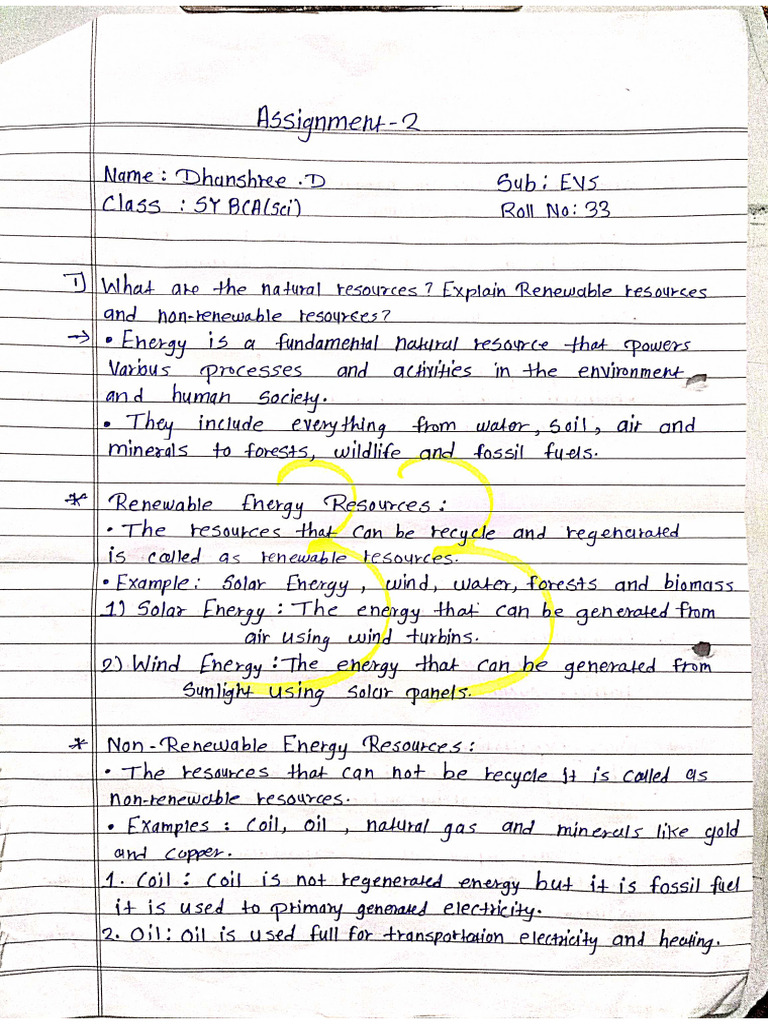 Assignment-2
Name : Dhanshree .D Sub : EVS
Class : SY BCA(Sci) Roll No: 33
1) What are the natural resources? Explain Renewable resources
and non-renewable resources?
→ • Energy is a fundamental natural resource that powers
various processes and activities in the environment
and human society.
• They include everything from water, soil, air and
minerals to forests, wildlife and fossil fuels.
* Renewable Energy Resources :
• The resources that can be recycle and regenerated
is called as renewable resources.
• Example : Solar Energy, wind, water, forests and biomass
1) Solar Energy : The energy that can be generated from
air using wind turbins.
2) Wind Energy : The energy that can be generated from
Sunlight using solar panels.
33
* Non-Renewable Energy Resources :
• The resources that can not be recycle it is called as
non-renewable resources.
• Examples : Coil, oil, natural gas and minerals like gold
and copper.
1. Coil : Coil is not regenerated energy but it is fossil fuel
it is used to primary generated electricity.
2. Oil : Oil is used full for transportation electricity and heating.